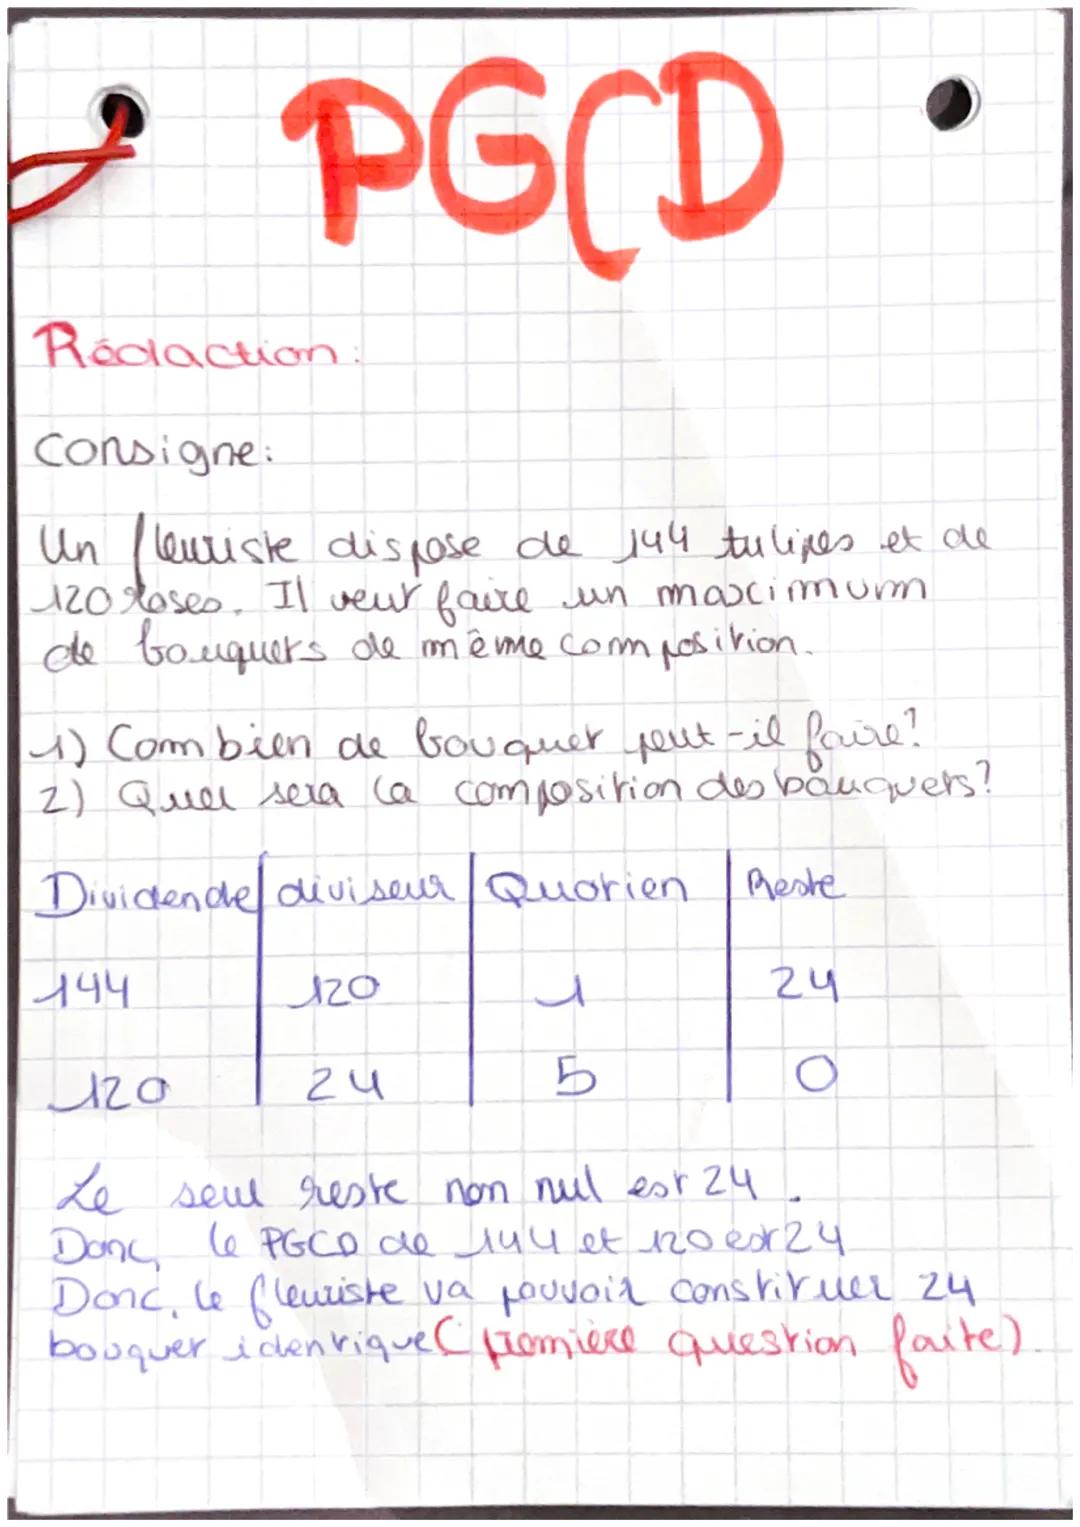 PGCD
Rédaction:
Consigne:
Un fleuriste dispose de 144 tulipes et de
120 roses. Il veut faire un maximum
de bouquets de même composition.
1) Combien de bouquet peut-il faire?
2) Quel sera la composition des bouquets?
Dividende diviseur Quotien Reste
144 120 1 24
120 24 5 0
Le seul reste non nul est 24.
Donc, le PGCD de 144 et 120 est 24
Donc, le fleuriste va pouvoir constituer 24
bouquet identique (première question faite).